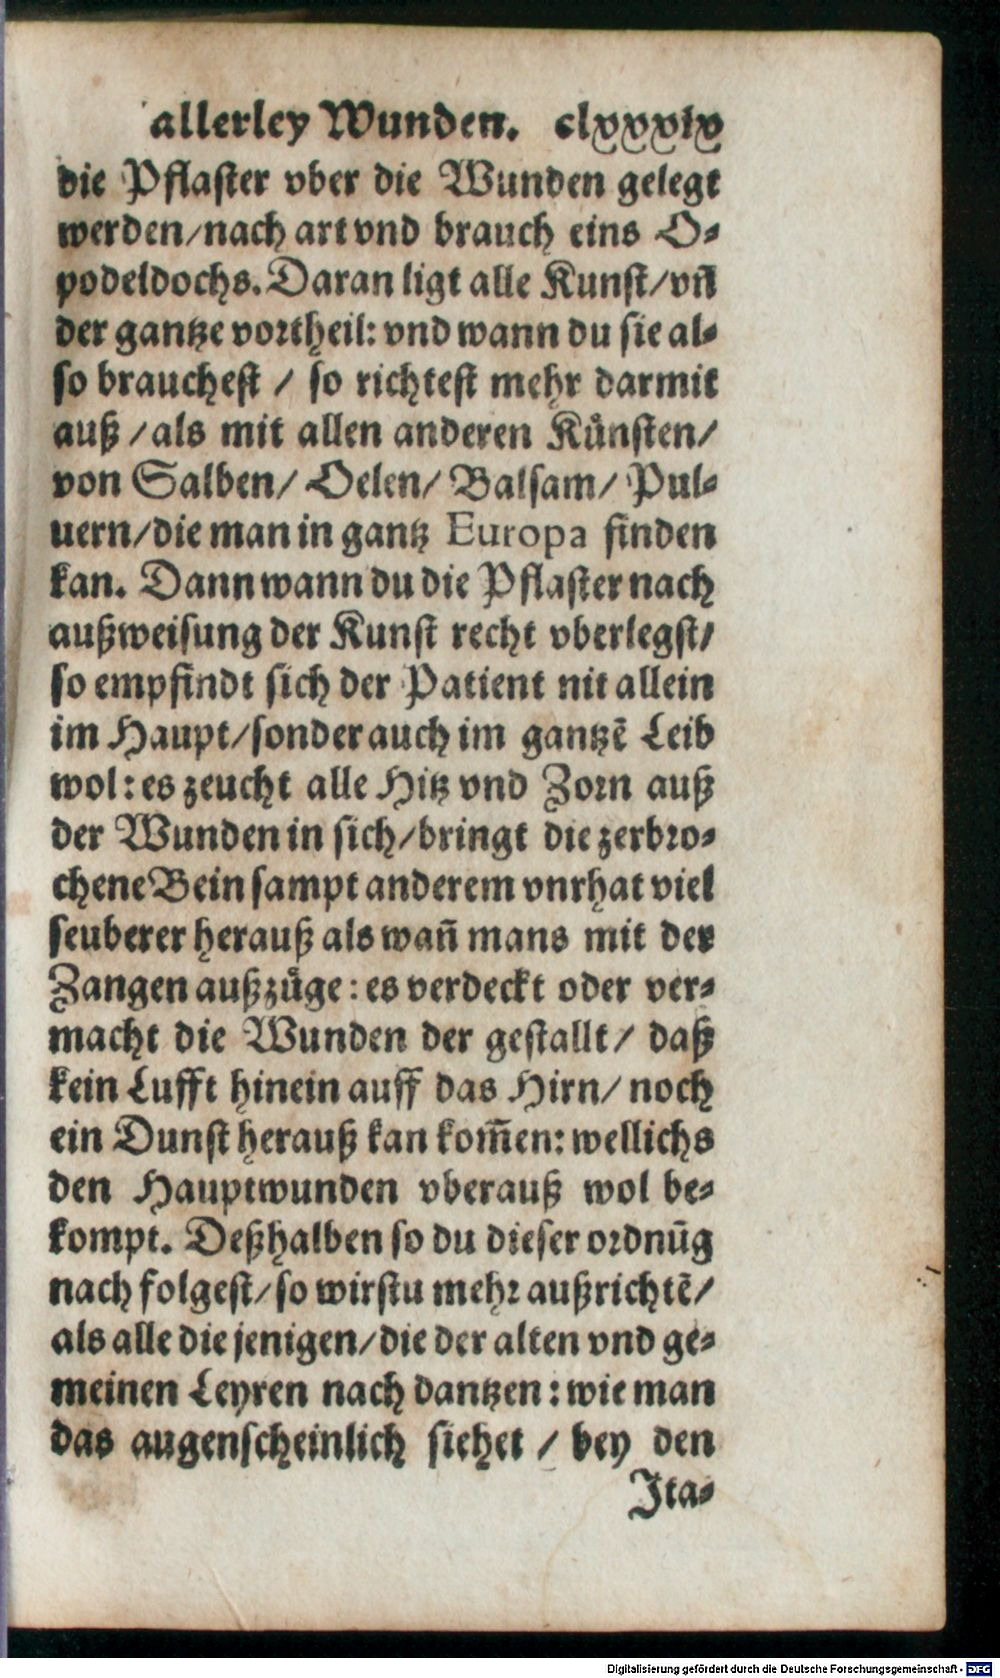 allerley Wunden. clxxxix
die Pflaster vber die Wunden gelegt
werden/nach art vnd brauch eins O-
podeldochs. Daran ligt alle Kunst/vñ
der gantze vortheil: vnd wann du sie al-
so brauchest / so richtest mehr darmit
auß /als mit allen anderen Künsten/
von Salben/ Oelen/ Balsam/ Pul-
uern/die man in gantz Europa finden
kan. Dann wann du die Pflaster nach
außweisung der Kunst recht vberlegst/
so empfindt sich der Patient nit allein
im Haupt/sonder auch im gantzẽ Leib
wol: es zeucht alle Hitz vnd Zorn auß
der Wunden in sich/bringt die zerbro-
chene Bein sampt anderem vnrhat viel
seuberer herauß als wañ mans mit der
Zangen außzüge: es verdeckt oder ver-
macht die Wunden der gestallt/ daß
kein Lufft hinein auff das Hirn/ noch
ein Dunst herauß kan kom̃en: wellichs
den Hauptwunden vberauß wol be-
kompt. Deßhalben so du dieser ordnũg
nach folgest/so wirstu mehr außrichtẽ/
als alle die jenigen/die der alten vnd ge-
meinen Leyren nach dantzen: wie man
das augenscheinlich siehet / bey den
Ita-
Digitalisierung gefördert durch die Deutsche Forschungsgemeinschaft - DFG